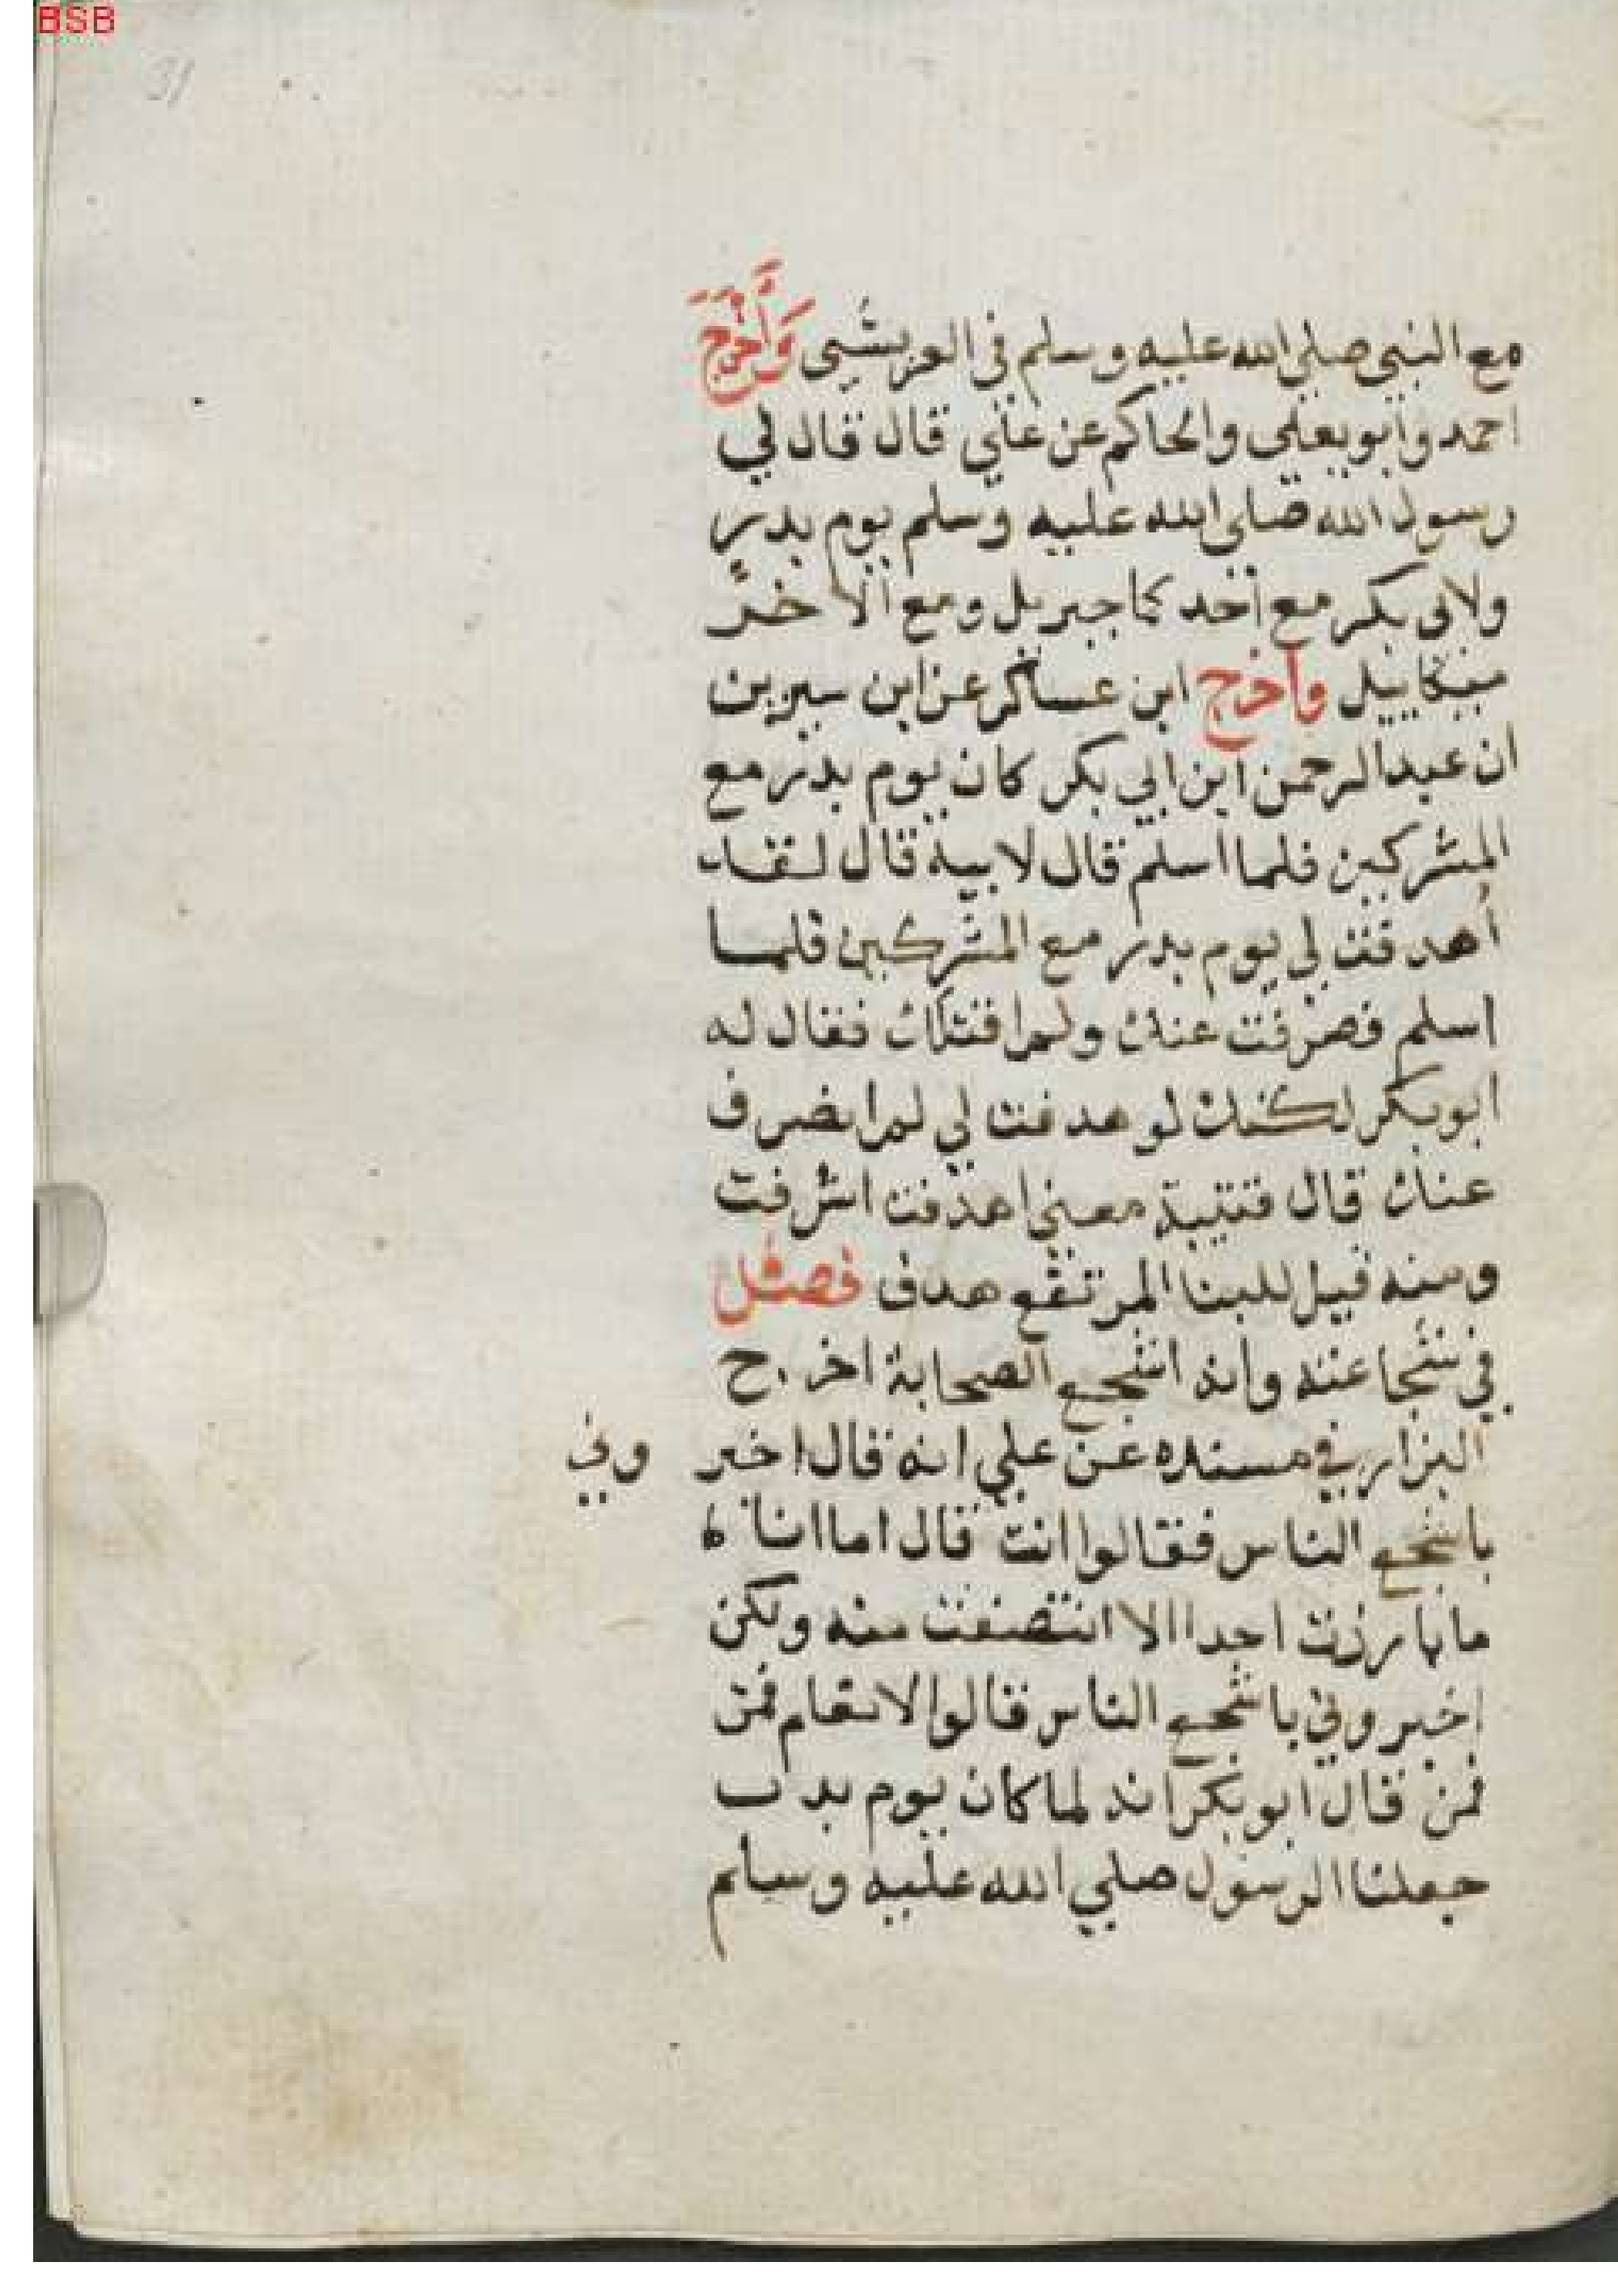 BSB
31
مع النبي صلي الله عليه وسلم في العريش وَأَخْرَجَ
احمد وابو يعلي والحاكم عن علي قال قال لي
رسول الله صلي الله عليه وسلم يوم بدر
ولابي بكر مع احد كما جبريل ومع الاخر
ميكاييل وأخرج ابن عساكر عن ابن سيرين
ان عبد الرحمن ابن ابي بكر كان يوم بدر مع
المشركين فلما اسلم قال لابيه قال لقد
أهدفت لي يوم بدر مع المشركين فلما
اسلم فصرفت عنك ولم اقتلك فقال له
ابو بكر لكنك لو هدفت لي لم انصرف
عنك قال قتيبة معني اهدفت اشرفت
ومنه قيل للبنا المرتفع هدف فصل
في شجاعته وانه اشجع الصحابة اخرج
البزار في مسنده عن علي انه قال اخبر وني
باشجع الناس فقالوا انت قال اما انا
ما بارزت احدا الا انتصفت منه ولكن
اخبروني باشجع الناس قالوا لا نعلم فمن
فمن قال ابو بكر انه لما كان يوم بدر
جعلنا الرسول صلي الله عليه وسلم